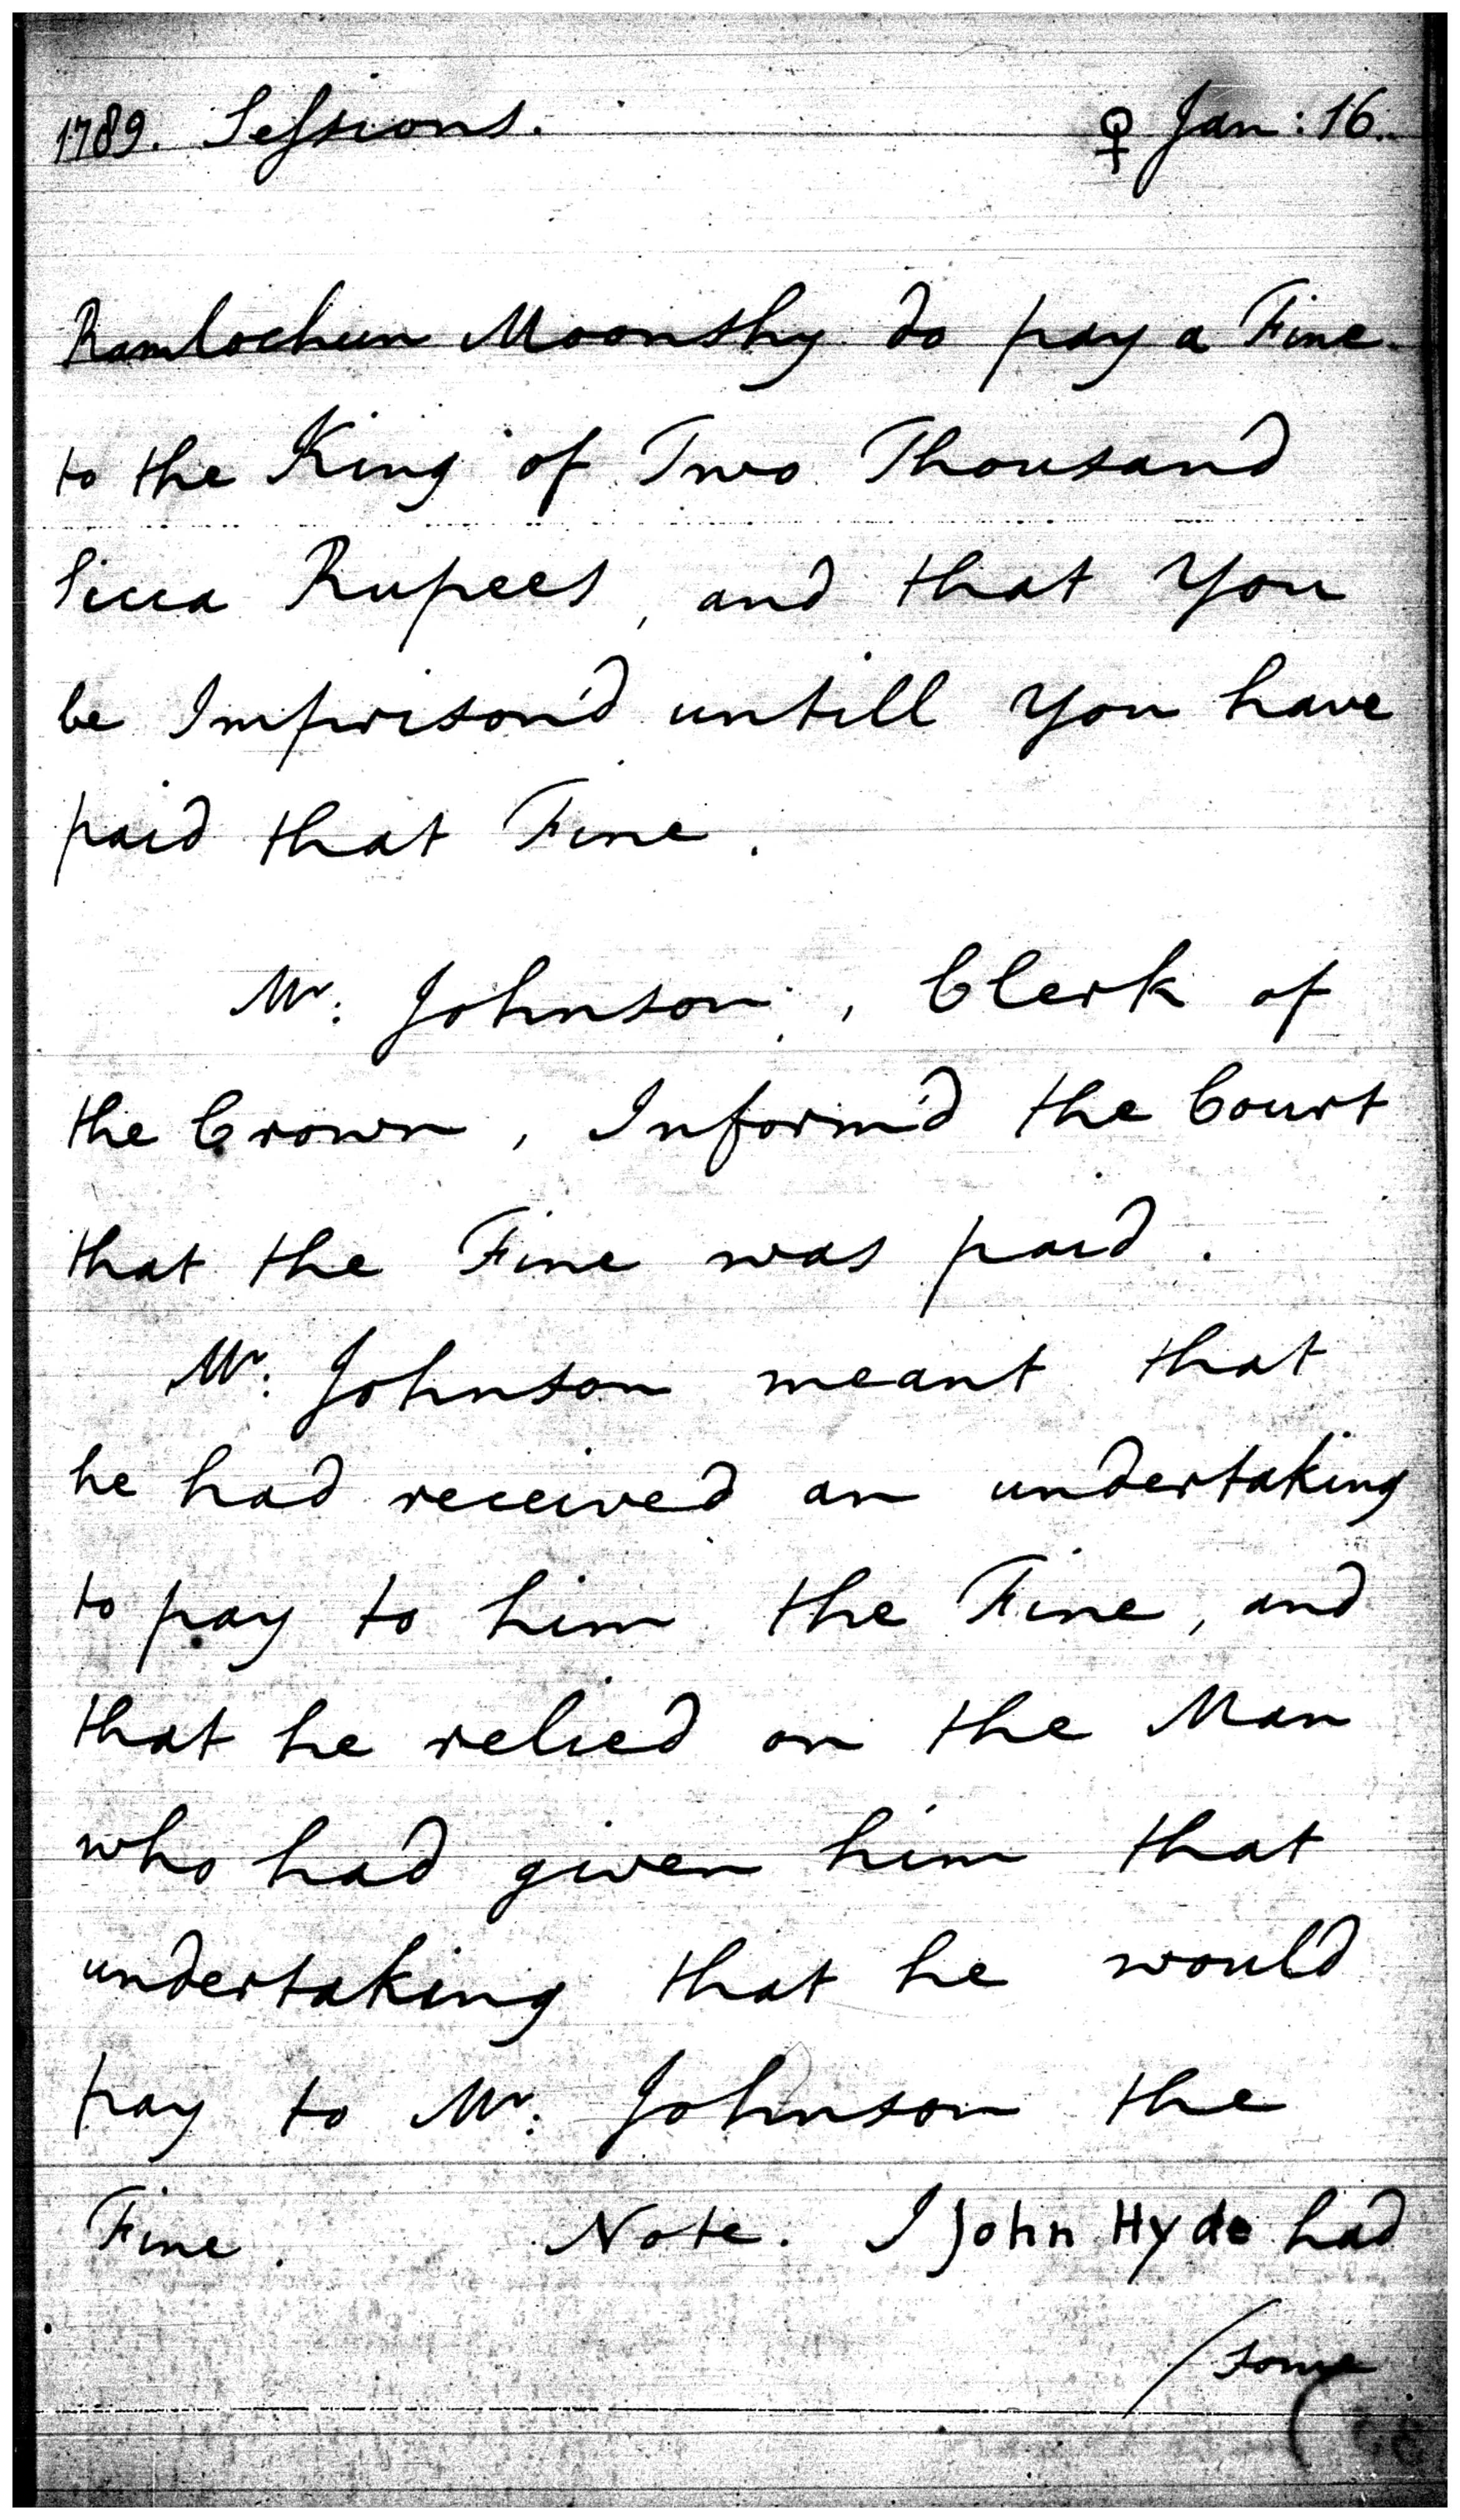 1789. Sessions. ♀ Jan: 16.
Ramlochun Moonshy do pay a Fine
to the King of Two Thousand
Sicca Rupees, and that You
be Imprison'd untill You have
paid that Fine.
Mr: Johnson, Clerk of
the Crown, Inform'd the Court
that the Fine was paid.
Mr: Johnson meant that
he had received an undertaking
to pay to him the Fine, and
that he relied on the Man
who had given him that
undertaking that he would
pay to Mr: Johnson the
Fine. Note. I John Hyde had
/some